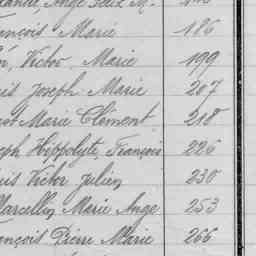 Ange Félix M.
ançois Marie 186
Victor Marie 199
is Joseph Marie 207
ot Marie Clément 218
eph Hippolyte, François 226
uis Victor Julien 230
Marcellin Marie Ange 253
ançois Pierre Marie 266